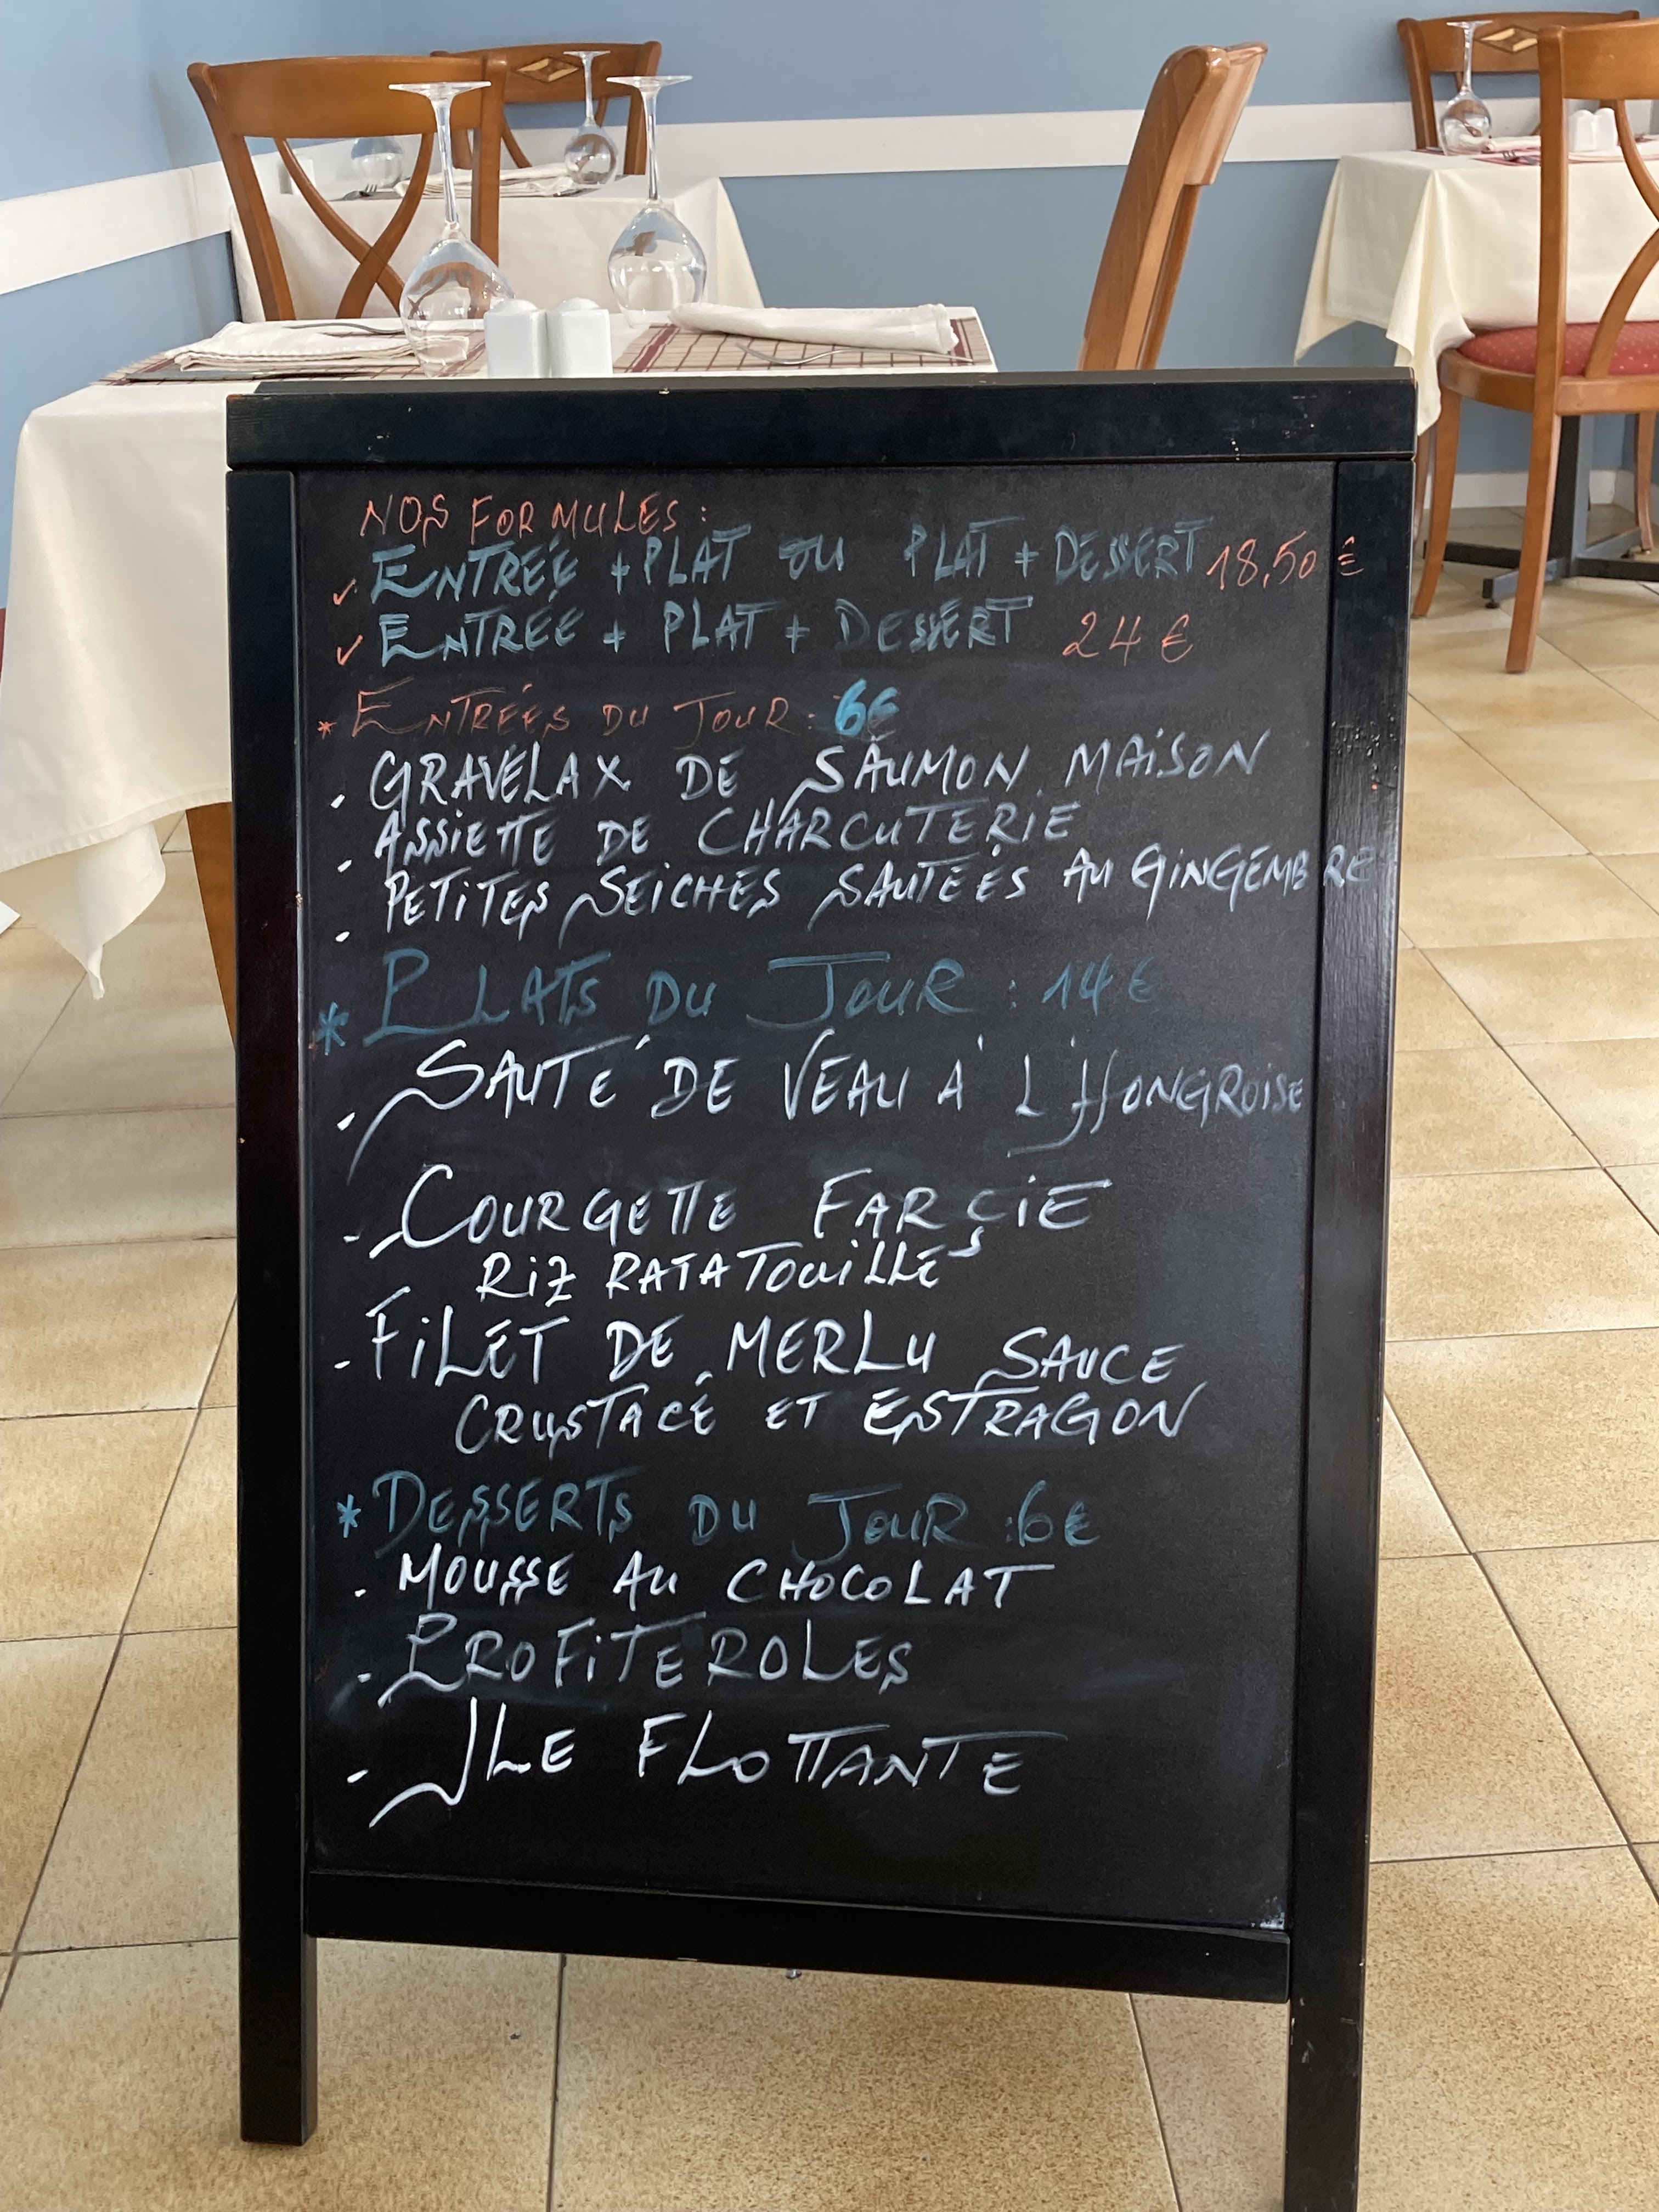 NOS FORMULES :
✓ ENTRÉE + PLAT OU PLAT + DESSERT 18,50 €
✓ ENTREE + PLAT + DESSERT 24 €
* ENTRÉES DU JOUR : 6€
. GRAVELAX DE SAUMON MAISON
. ASSIETTE DE CHARCUTERIE
. PETITES SEICHES SAUTÉES AU GINGEMBRE
* PLATS DU JOUR : 14 €
. SAUTÉ DE VEAU A L'HONGROISE
- COURGETTE FARCIE
RIZ RATATOUILLE
- FILET DE MERLU SAUCE
CRUSTACÉ ET ESTRAGON
* DESSERTS DU JOUR : 6€
. MOUSSE AU CHOCOLAT
. PROFITEROLES
- ILE FLOTTANTE